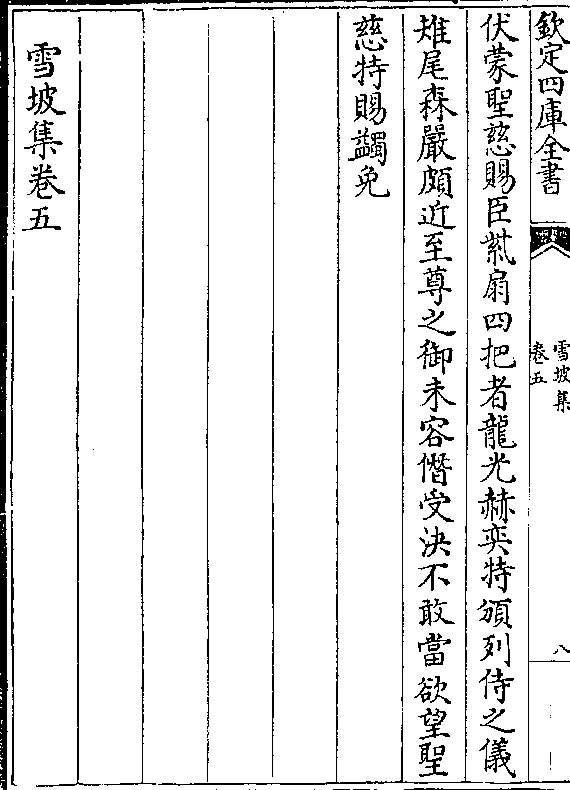 欽定四庫全書
雪坡集
卷五
八
伏蒙聖慈賜臣紫扇四把者龍光赫奕特頒列侍之儀
雉尾森嚴頗近至尊之御未容僭受決不敢當欲望聖
慈特賜蠲免
雪坡集卷五